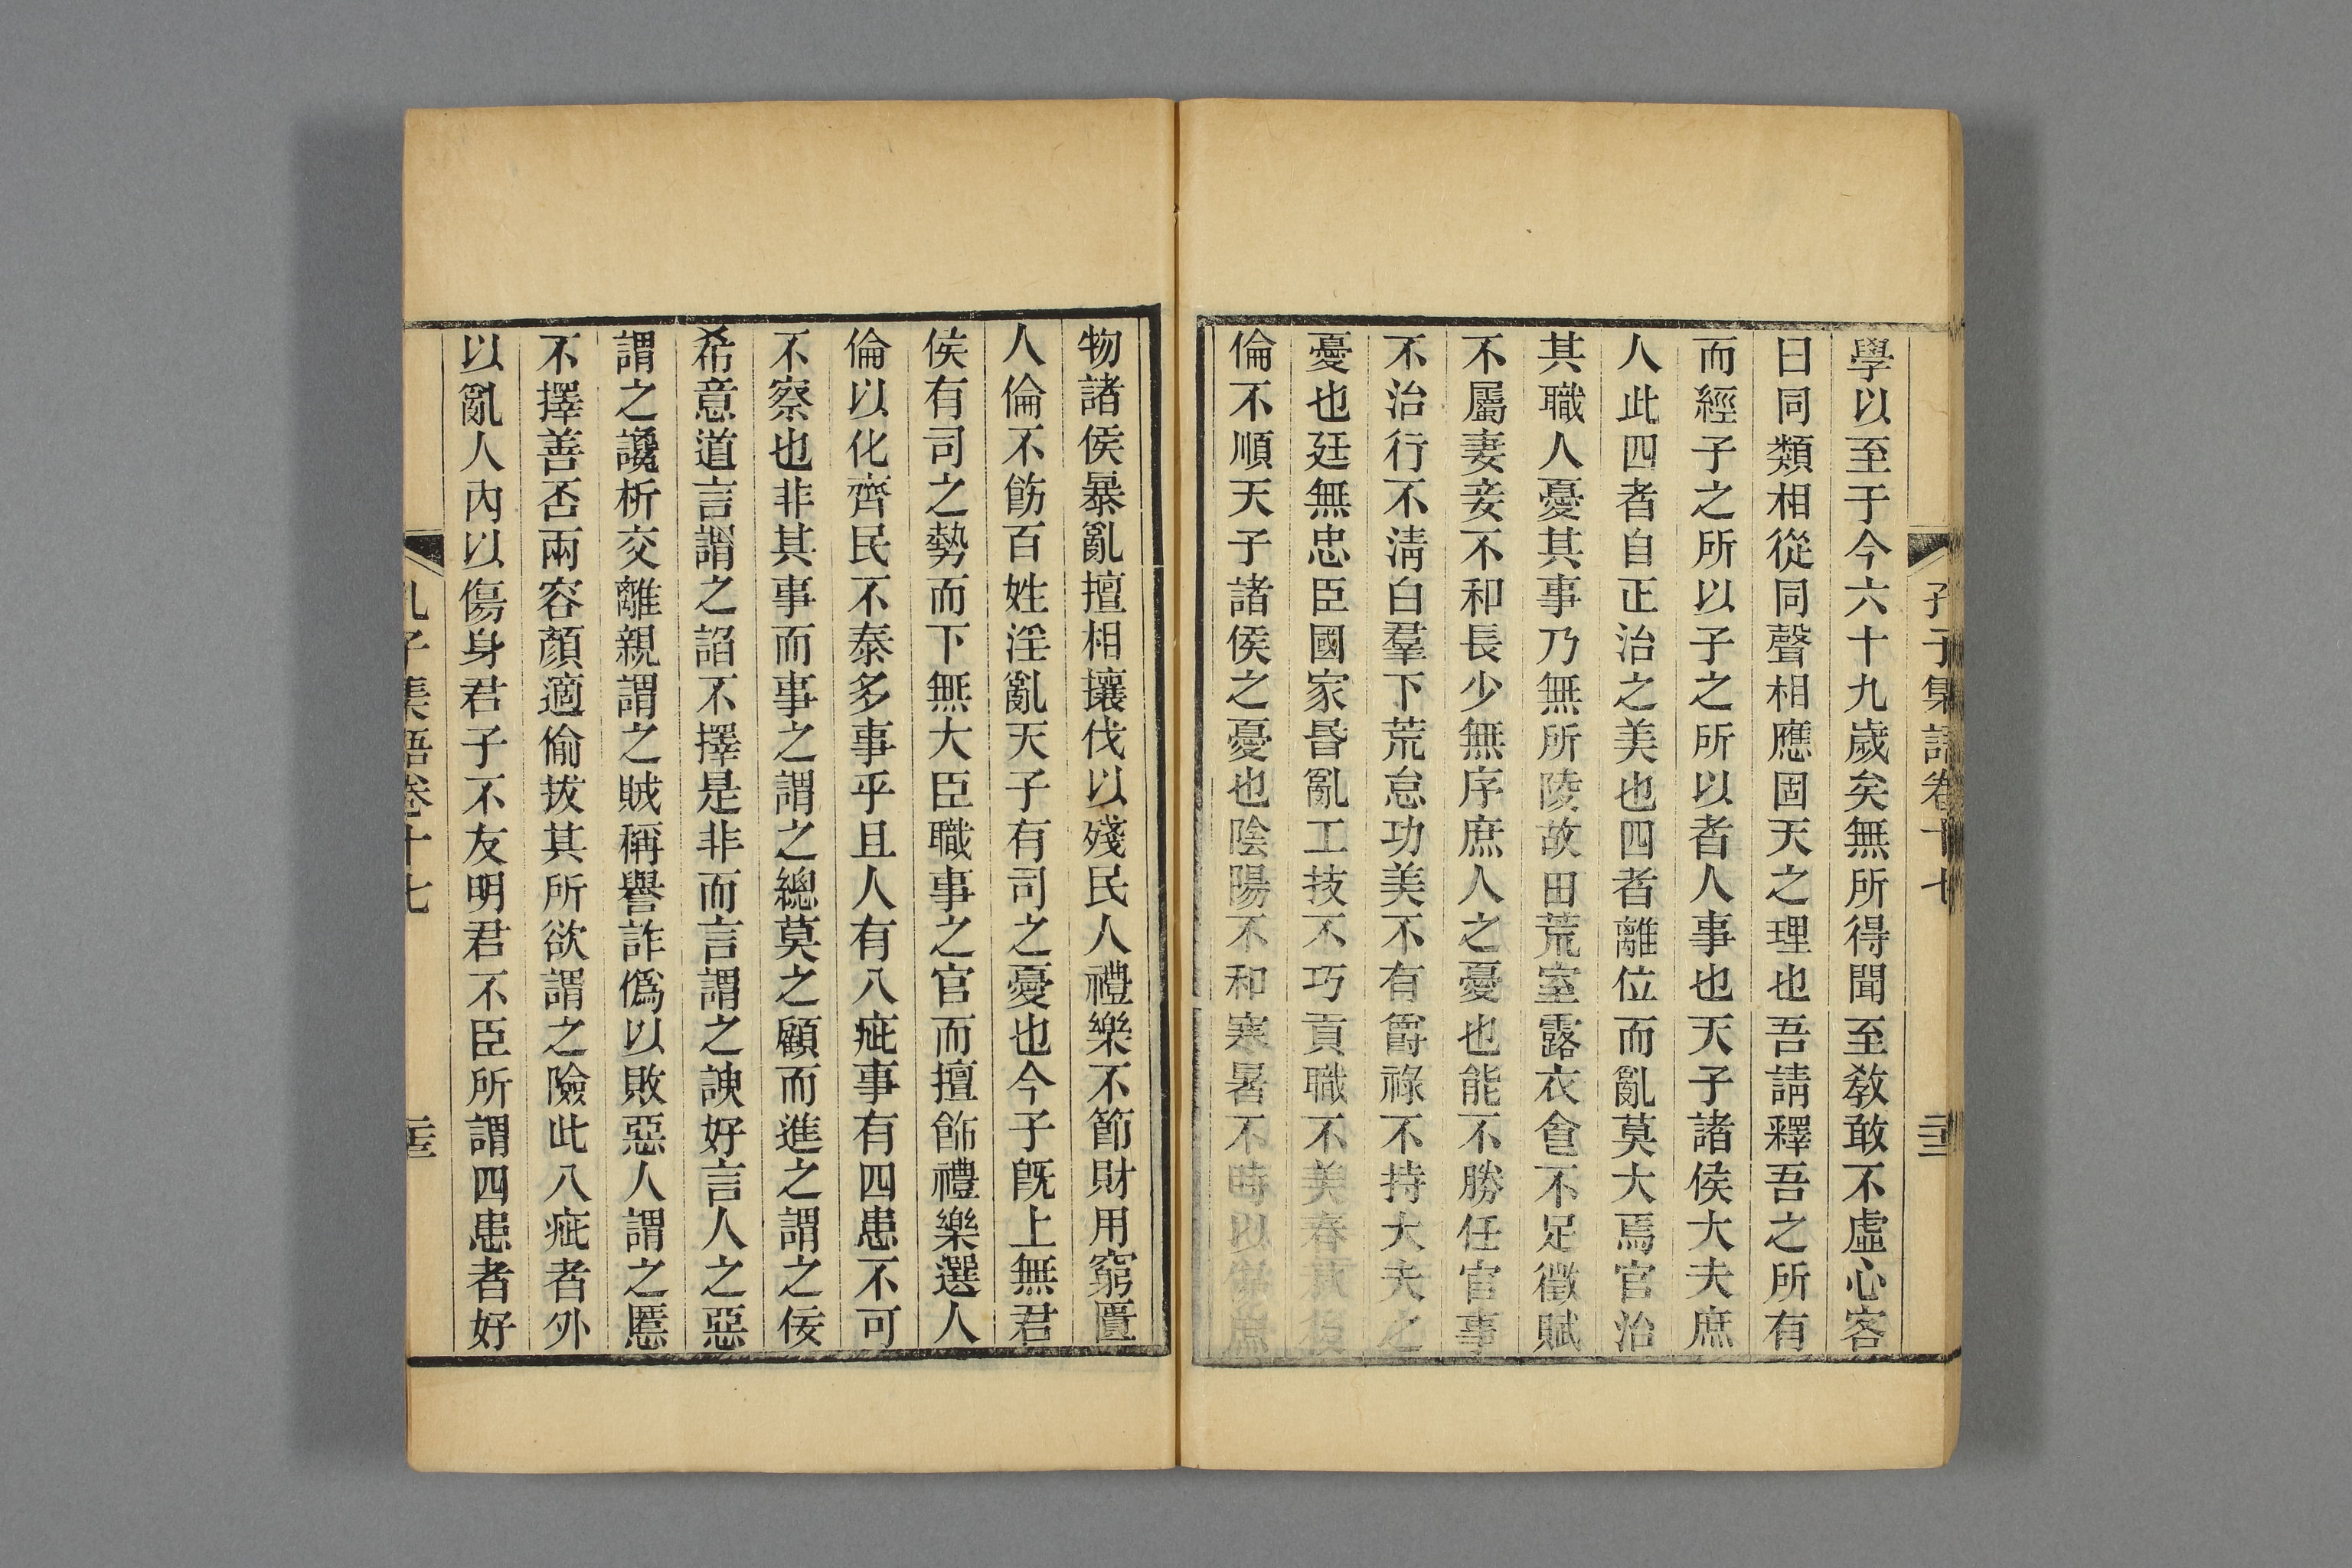 孔子集語卷十七
二十二
學以至于今六十九歲矣無所得聞至敎敢不虛心客
曰同類相從同聲相應固天之理也吾請釋吾之所有
而經子之所以子之所以者人事也天子諸侯大夫庶
人此四者自正治之美也四者離位而亂莫大焉官治
其職人憂其事乃無所陵故田荒室露衣食不足徵賦
不屬妻妾不和長少無序庶人之憂也能不勝任官事
不治行不淸白羣下荒怠功美不有爵祿不持大夫之
憂也廷無忠臣國家昏亂工技不巧貢職不美春秋後
倫不順天子諸侯之憂也陰陽不和寒暑不時以傷庶
物諸侯暴亂擅相攘伐以殘民人禮樂不節財用窮匱
人倫不飭百姓淫亂天子有司之憂也今子旣上無君
侯有司之勢而下無大臣職事之官而擅飾禮樂選人
倫以化齊民不泰多事乎且人有八疵事有四患不可
不察也非其事而事之謂之總莫之顧而進之謂之佞
希意道言謂之諂不擇是非而言謂之諛好言人之惡
謂之讒析交離親謂之賊稱譽詐僞以敗惡人謂之慝
不擇善否兩容顏適偷拔其所欲謂之險此八疵者外
以亂人內以傷身君子不友明君不臣所謂四患者好
孔子集語卷十七